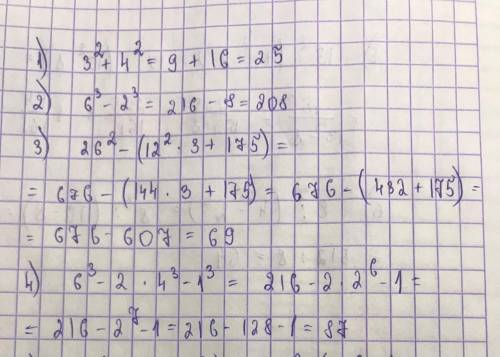 1) 3² + 4² = 9 + 16 = 25
2) 6³ - 2³ = 216 - 8 = 208
3) 26² - (12² · 3 + 175) =
= 676 - (144 · 3 + 175) = 676 - (432 + 175) =
= 676 - 607 = 69
4) 6³ - 2 · 4³ - 1³ = 216 - 2 · 2⁶ - 1 =
= 216 - 2⁷ - 1 = 216 - 128 - 1 = 87